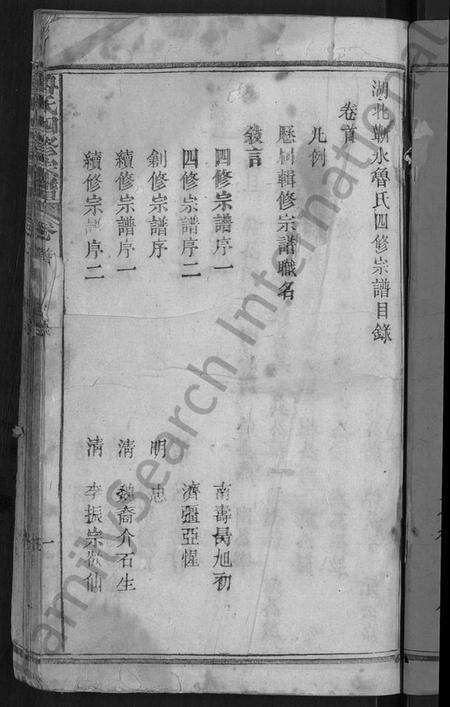 湖北蘄水魯氏四修宗譜目錄
卷首
凡例
歷屆輯修宗譜職名
發言
四修宗譜序一 南壽昌旭初
四修宗譜序二 濟疆亞惺
創修宗譜序 明 忠
續修宗譜序一 清 魏裔介石生
續修宗譜序二 清 李振宗欲仙
魯氏四修宗譜 卷首
一
FamilySearch International